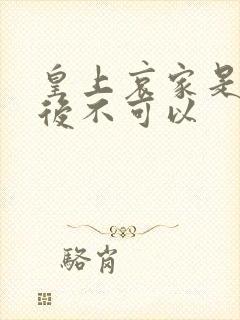 皇上哀家是
後不可以
駱肖